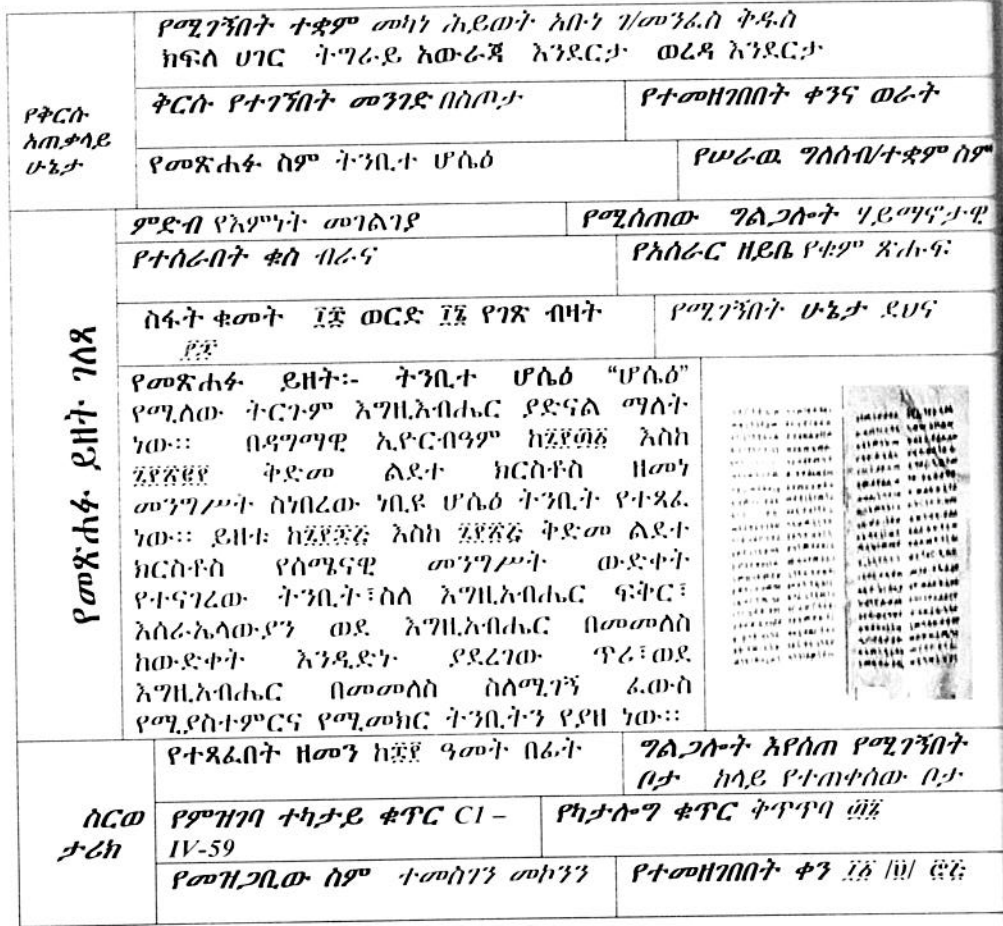 የሚገኝበት ተቋም መካነ ሕይወት አቡነ ገ/መንፈስ ቅዱስ
ክፍለ ሀገር ትግራይ አውራጃ እንደርታ ወረዳ እንደርታ
የቅርሱ
አጠቃላይ
ሁኔታ
ቅርሱ የተገኘበት መንገድ በስጦታ
የተመዘገበበት ቀንና ወራት
የመጽሐፉ ስም ትንቢተ ሆሴዕ
የሠራዉ ግለሰብ/ተቋም ስም
የመጽሐፉ ይዘት ገለጻ
ምድብ የእምነት መገልገያ
የሚሰጠው ግልጋሎት ሃይማኖታዊ
የተሰራበት ቁስ ብራና
የአሰራር ዘይቤ የቁም ጽሑፍ
ስፋት ቁመት ወርድ የገጽ ብዛት
የሚገኝበት ሁኔታ ደህና
የመጽሐፉ ይዘት፡- ትንቢተ ሆሴዕ “ሆሴዕ”
የሚለው ትርጉም እግዚእብሔር ያድናል ማለት
ነው፡፡ በዳግማዊ ኢዮርብዓም እስከ
ቅድመ ልደተ ክርስቶስ ዘመነ
መንግሥት ስነበረው ነቢዩ ሆሴዕ ትንቢት የተጻፈ
ነው፡፡ ይዘቱ እስከ ቅድመ ልደተ
ክርስቶስ የሰሜናዊ መንግሥት ውድቀት
የተናገረው ትንቢት፣ስለ እግዚአብሔር ፍቅር፣
እስራኤላውያን ወደ እግዚአብሔር በመመለስ
ከውድቀት እንዲድኑ ያደረገው ጥሪ፣ወደ
እግዚአብሔር በመመለስ ስለሚገኝ ፈውስ
የሚያስተምርና የሚመክር ትንቢትን የያዘ ነው፡፡
ስርወ
ታሪክ
የተጻፈበት ዘመን ዓመት በፊት
ግልጋሎት እየሰጠ የሚገኝበት
ቦታ ከላይ የተጠቀሰው ቦታ
የምዝገባ ተከታይ ቁጥር C1 –
IV-59
የካታሎግ ቁጥር ቅጥጥባ
የመዝጋቢው ስም ተመስገን መኮንን
የተመዘገበበት ቀን